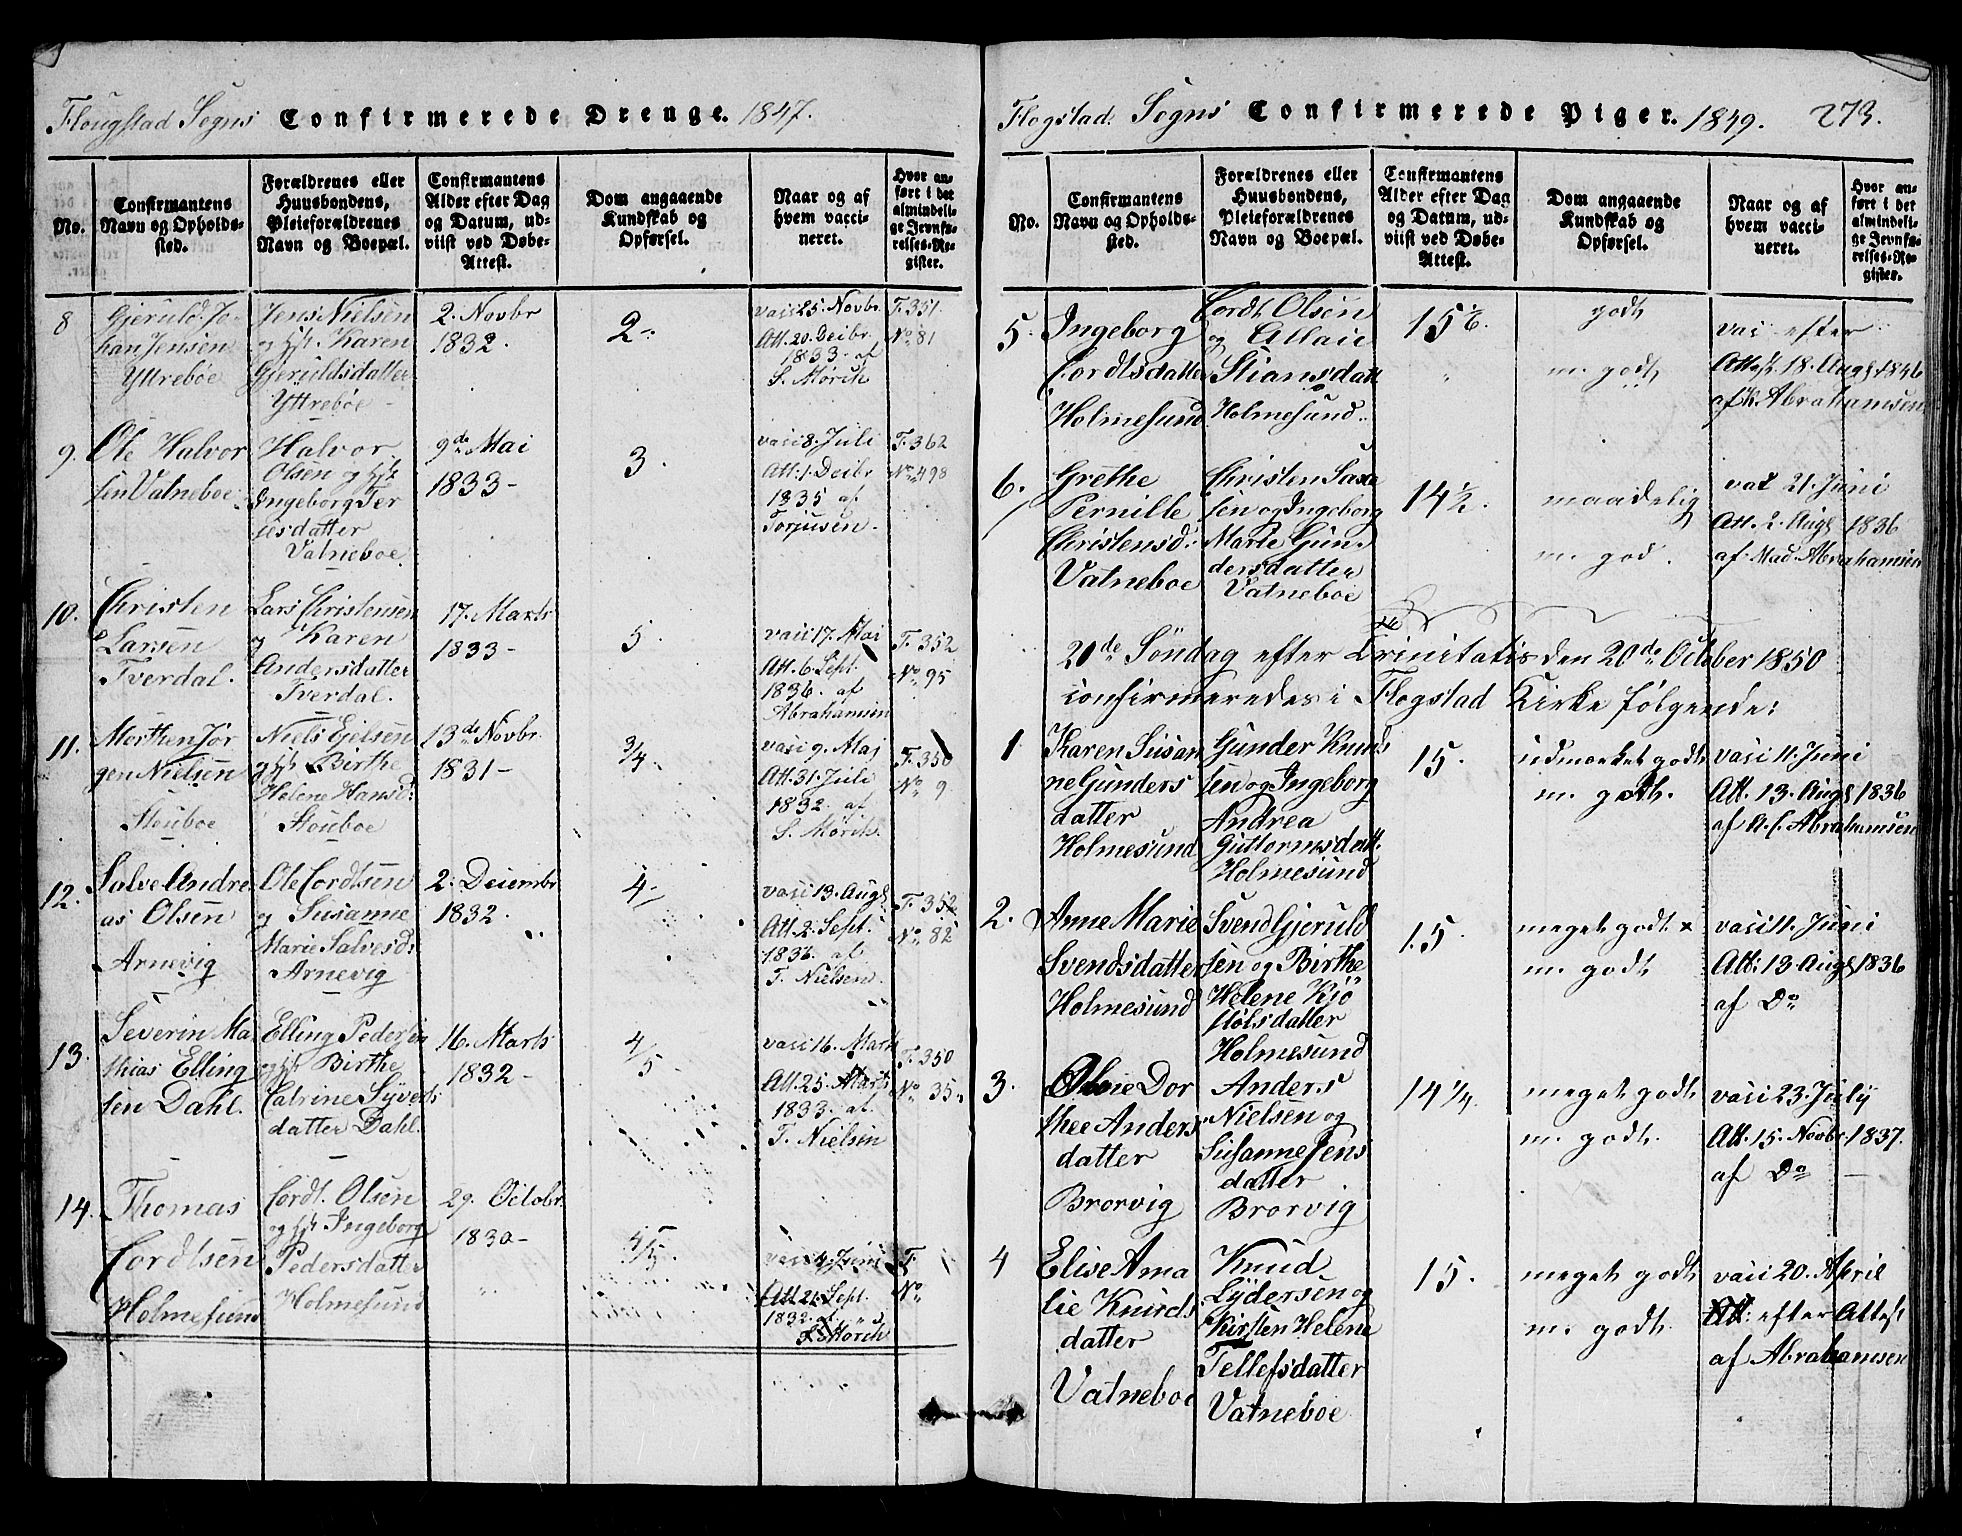 Flougstad Sogns Confirmerede Drenge. 1847.
No.
Confirmantens
Navn og Opholds-
sted.
Forældrenes eller
Huusbondens,
Pleieforældrenes
Navn og Boepæl.
Confirmantens
Alder efter Dag
og Datum, ud-
viist ved Døbe-
Attest.
Dom angaaende
Kundskab og
Opførsel.
Naar og af
hvem vacci-
neret.
Hvor an-
ført i det
almindeli-
ge Jevnfø-
relses-Re-
gister.
8
Gjeruld Jo-
han Jensen
Yttreboe
Jens Nielsen
og Karen
Gjeruldsdatter
Yttreboe
2. Novbr
1832.
2
vac 25. Novbr
Att. 20. Decbr
1833. af
S. Mørch
F. 351.
No. 81
9.
Ole Halvor
sen Vatneboe
Halvor
Olsen og
Ingeborg Ter
jesdatter
Vatneboe
9de Mai
1833-
3.
vac 8. Juli
Att. 1. Decbr
1835 af
Torjusen.
F. 362
No. 498
10.
Christen
Larsen
Tverdal.
Lars Christensen
og Karen
Andersdatter
Tverdal.
17. Marts
1833-
5.
vac 17. Mai
Att. 6. Sept.
1836. af
Abrahamsen
F. 352
No. 95
11.
Morthen Jør
gen Nielsen
Stouboe
Niels Ejelsen
og Birthe
Helene Hansd:
Stouboe
13de Novbr
1831-
3/4.
vac 9. Mai
Att. 31. Juli
1832. af
S. Mørch.
F. 350
No. 9
12.
Salve Andre
as Olsen
Arnevig
Ole Cordtsen
og Susanne
Marie Salvesd:
Arnevig
2. Decembr
1832.
4-
vac 13. Augs
Att. 2. Sept.
1836. af
T. Nielsen
F. 352
No. 82
13.
Severin Ma
thias Elling
sen Dahl.
Elling Pedersen
og Birthe
Catrine Syverts
datter Dahl.
16. Marts
1832-
4/5
vac 16. Marts
Att. 25. Marts
1833. af
T. Nielsen
F. 350
No. 35.
14.
Thomas
Cordtsen
Holmesund
Cordt. Olsen
og Ingeborg
Pedersdatter
Holmesund
29. Octobr.
1830-
4/5.
vac 4. Juni
Att. 21. Sept.
1832. af
S. Mørch
F.
No.
Flogstad Sogns Confirmerede Piger. 1849. 273.
No.
Confirmantens
Navn og Opholds-
sted.
Forældrenes eller
Huusbondens,
Pleieforældrenes
Navn og Boepæl.
Confirmantens
Alder efter Dag
og Datum, ud-
viist ved Døbe-
Attest.
Dom angaaende
Kundskab og
Opførsel.
Naar og af
hvem vacci-
neret.
Hvor an-
ført i det
almindeli-
ge Jevnfø-
relses-Re-
gister.
5.
Ingeborg
Cordtsdatter
Holmesund
Cordt Olsen
og
Stiansdatt
Holmesund.
15
godt
m. godt
vac efter
Attest. 18. Augs. 1846
af K. Abrahamsen
6.
Grethe
Pernille
Christensd:
Vatneboe
Christen Saxe
sen og Ingeborg
Marie Gun-
dersdatter
Vatneboe
14 1/2.
maadelig
m. god.
vac 21. Juni
Att. 2. Augs 1836
af Mad. Abrahamsen
21de Søndag efter Trinitatis den 20de October 1850
confirmeredes i Flogstad Kirke følgende:
1
Karen Susan
ne Gunders
datter
Holmesund
Gunder Knud
sen og Ingeborg
Andrea
Guttormsdatt.
Holmesund
15.
udmærket godt
m. godt.
vac 11. Juni
Att. 13. Augs 1836
af A. C. Abrahamsen
2.
Anne Marie
Svendsdatter
Holmesund
Svend Gjeruld
sen og Birthe
Helene Kjø
stølsdatter
Holmesund
15.
meget godt x
m. godt
vac 11. Juni
Att: 13 Augs 1836
af Do
3.
Oline Dor
thee Anders
datter
Brorvig
Anders
Nielsen og
Susanne Jens
datter
Brorvig
14 1/4.
meget godt
m. godt.
vac 23. July
Att. 15. Novbr. 1837.
af Do
4
Elise Ama
lie Knuds
datter
Vatneboe
Knud
Lydersen og
Kirsten Helene
Tellefsdatter
Vatneboe
15.
meget godt
m. godt.
vac 20. April
Att: efter Attest
af Abrahamsen